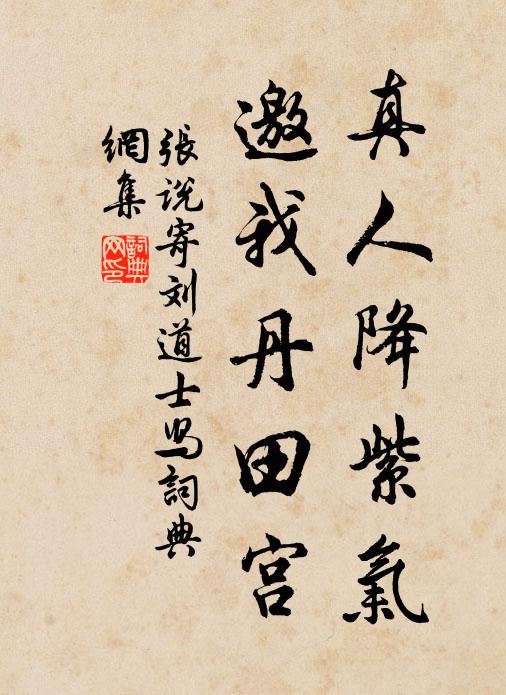 真人降紫氣
邀我丹田宫
張说寄刘道士為詞典
網集
詞典
网印